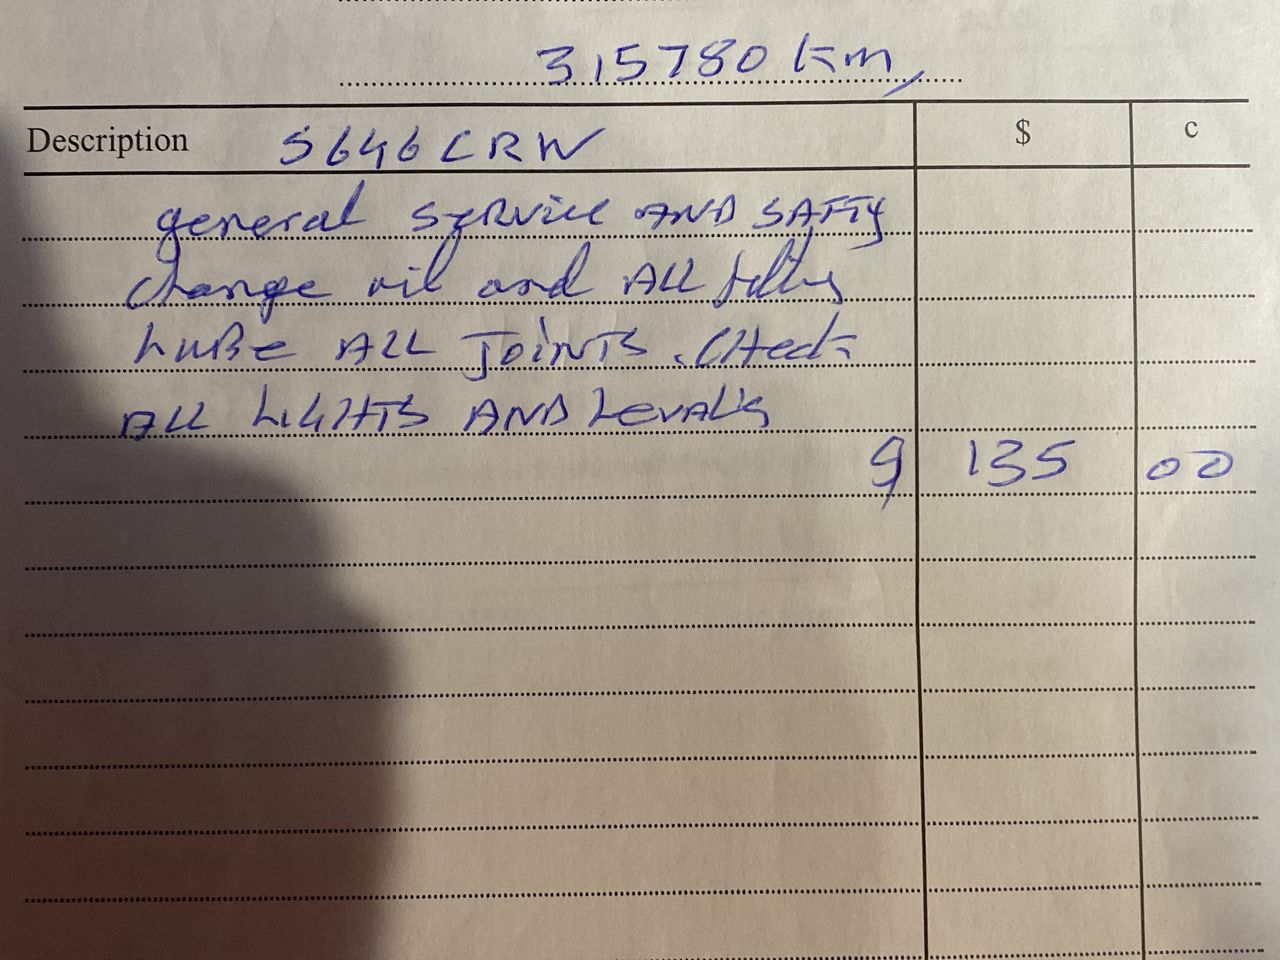 315780 km
Description 5646CRW $ c
general service AND SAFTY
change oil and ALL filters
LuBe ALL JOiNTS. CHeck
ALL LIGHTS AND LeVALS
135 00